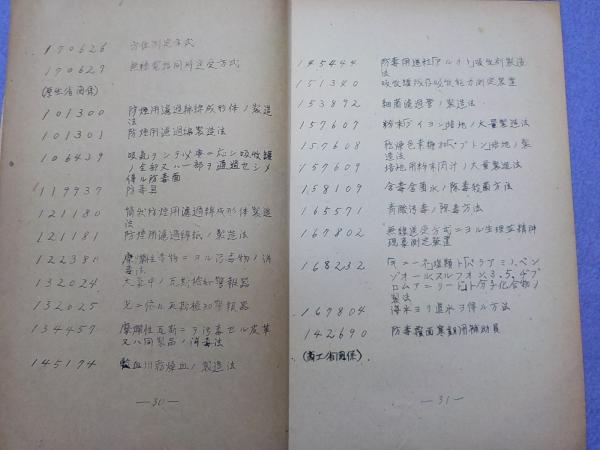 170626 方位測定方式
170627 無線電話同時送受方式
(厚生省関係)
101300 防煙用濾過綿成形体ノ製造
法
101301 防煙用濾過綿製造法
106439
又ハ一部ヲ通過セシメ
得ル防毒面
119937 防毒具
121180 筒状防煙用濾過綿成形体製造
法
121181 防煙用濾過綿紙ノ製造法
122380 糜爛性毒物ニヨル汚毒物ノ消
毒法
132024 大気中ノ瓦斯検知警報器
132025 光ニ依ル瓦斯検知警報器
134457 糜爛性瓦斯ニテ汚毒セル皮革
又ハ同製品ノ消毒法
145174 乾燥血ノ製造法
—30—
145444 防毒用進社「アルカリ」吸収剤製造
法
151340 吸収罐成存吸収能力測定装置
153892 細菌濾過管ノ製造法
157607 粉末「ブイヨン」培地ノ大量製造法
157608 「ペプトン」培地ノ製
造法
157609 培地用粉末肉汁ノ大量製造法
158109 含毒含菌水ノ除毒殺菌方法
165571 青酸汚毒ノ除毒方法
167802 無線送受方式ニヨル生理並精神
現象測定装置
168232 「パラアミノベン
ゾオールスルフォン」3.5.ヂブ
ロムアニリード分子化合物ノ
製法
167804 海水ヨリ真水ヲ得ル方法
142690 防毒覆面寒剤用補助具
(商工省関係).
—31—